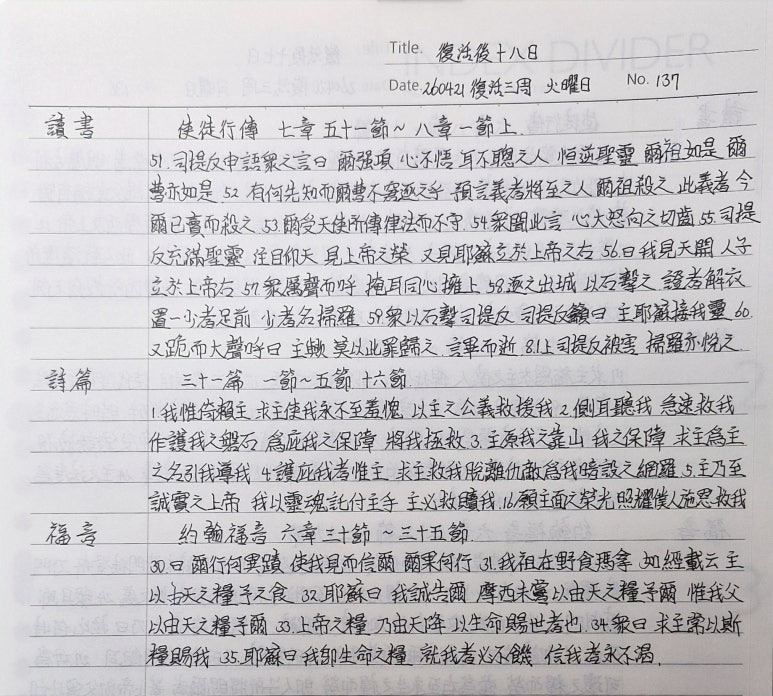 Title. 復活後十八日
Date. 260421 復活三周 火曜日 No. 137
讀書 使徒行傳 七章 五十一節~ 八章一節上
51. 司提反申語眾之言曰 爾强項 心不悟 耳不聰之人 恒逆聖靈 爾祖如是 爾
曹亦如是 52. 有何先知而爾曹不窘逐之乎 預言義者將至之人 爾祖殺之 此義者 今
爾已賣而殺之 53. 爾受天使所傳律法而不守. 54. 眾聞此言 心大怒向之切齒 55. 司提
反充滿聖靈 注目仰天 見上帝之榮 又見耶穌立於上帝之右 56. 曰 我見天開 人子
立於上帝右 57. 眾厲聲而呼 掩耳同心擁上 58. 逐之出城 以石擊之 證者解衣
置一少者足前 少者名掃羅 59. 眾以石擊司提反 司提反籲曰 主耶穌接我靈 60.
又跪而大聲呼曰 主歟 莫以此罪歸之 言畢而逝 8.1上 司提反被害 掃羅亦悅之
詩篇 三十一篇 一節~五節 十六節
1. 我惟倚賴主 求主使我永不至羞愧 以主之公義救援我 2. 側耳聽我 急速救我
作護我之磐石 為庇我之保障 將我拯救 3. 主原我之靠山 我之保障 求主為主
之名引我導我 4. 護庇我者惟主 求主救我脫離仇敵為我暗設之網羅 5. 主乃至
誠實之上帝 我以靈魂託付主手 主必救贖我. 16. 願主面之榮光 照耀僕人施恩救我
福音 約翰福音 六章 三十節 ~三十五節
30. 曰 爾行何異蹟 使我見而信爾 爾果何行 31. 我祖在野食瑪拿 如經載云 主
以由天之糧予之食 32. 耶穌曰 我誠告爾 摩西未嘗以由天之糧予爾 惟我父
以由天之糧予爾 33. 上帝之糧 乃由天降 以生命賜世者也. 34. 眾曰 求主常以斯
糧賜我 35. 耶穌曰 我卽生命之糧 就我者必不饑 信我者永不渴.